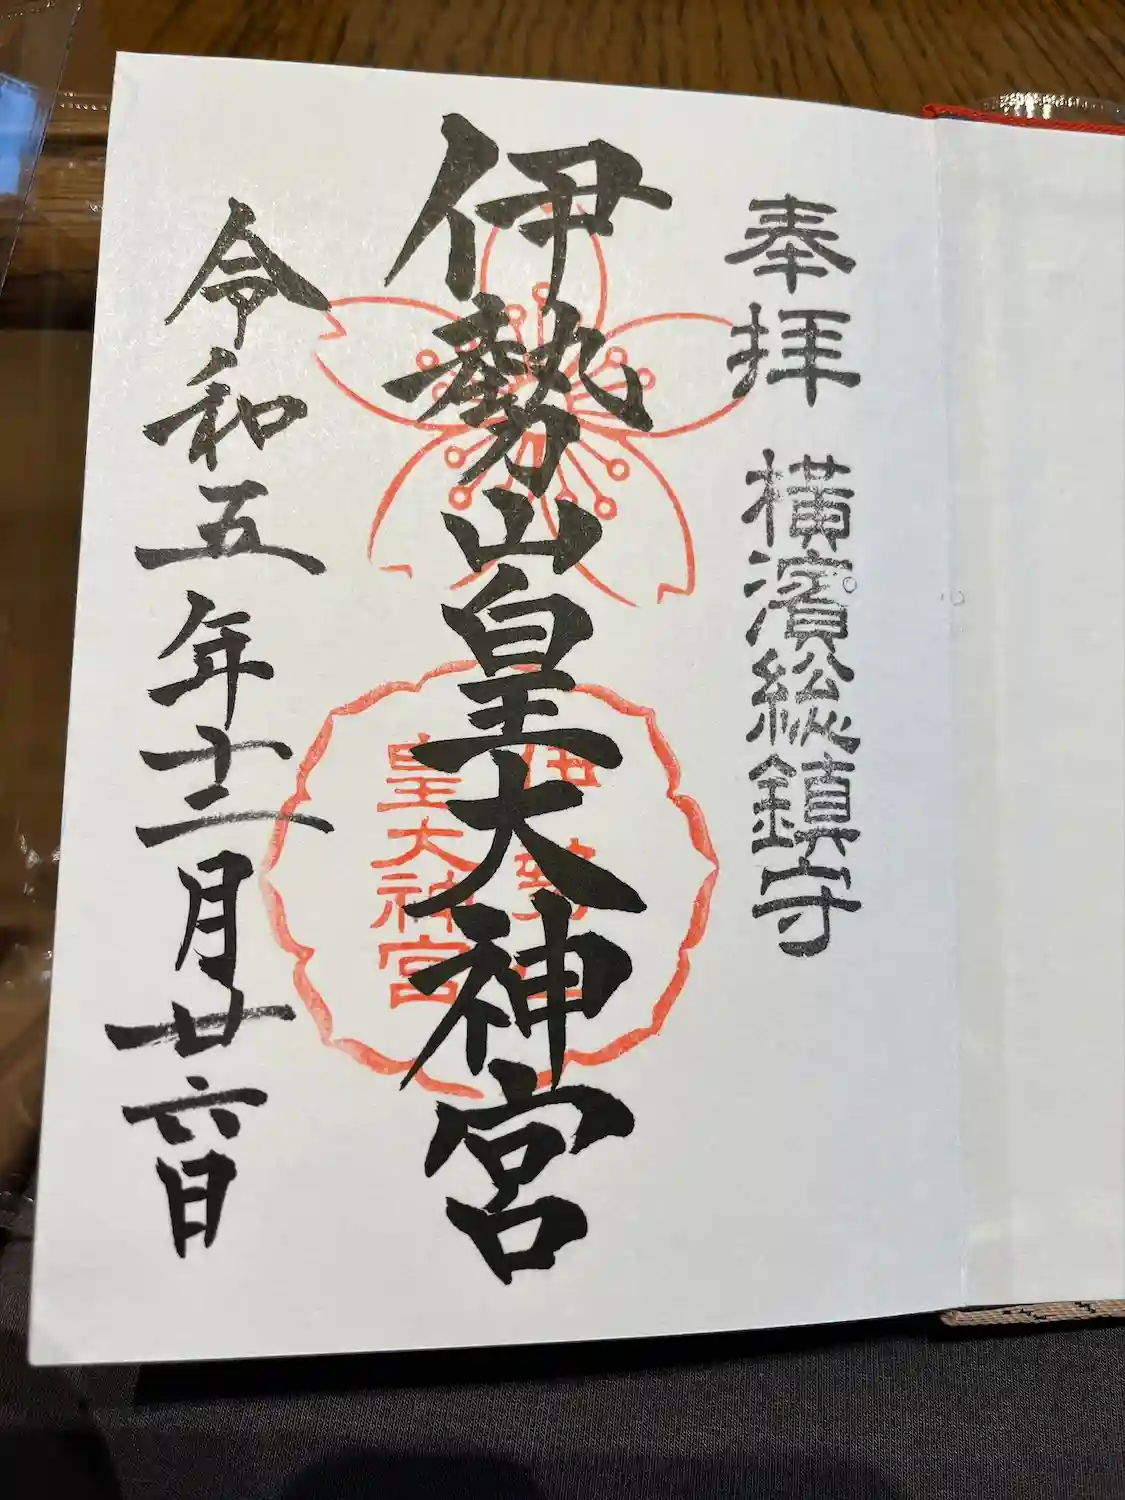 奉拝 横濱総鎮守
伊勢山皇大神宮
令和五年十二月廿六日
伊勢
皇大神宮